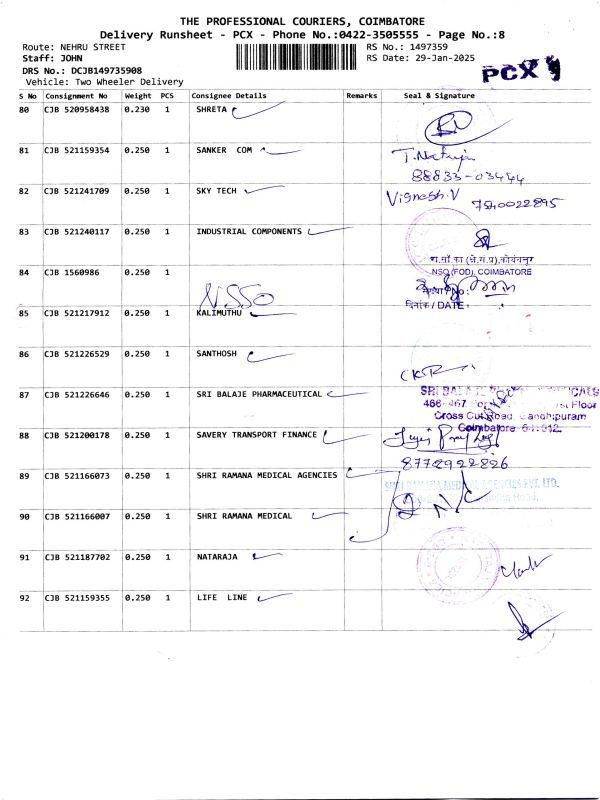 THE PROFESSIONAL COURIERS, COIMBATORE
Delivery Runsheet - PCX - Phone No.:0422-3505555 - Page No.:8
Route: NEHRU STREET
RS No.: 1497359
Staff: JOHN
RS Date: 29-Jan-2025
DRS No.: DCJB149735908
PCX
Vehicle: Two Wheeler Delivery
S No Consignment No Weight PCS Consignee Details Remarks Seal & Signature
80 CJB 520958438 0.230 1 SHRETA
81 CJB 521159354 0.250 1 SANKER COM
88833-03444
82 CJB 521241709 0.250 1 SKY TECH Vignesh.V
83 CJB 521240117 0.250 1 INDUSTRIAL COMPONENTS
NSO (FOD), COIMBATORE
84 CJB 1560986 0.250 1 NSSO
दिनांक / DATE :
85 CJB 521217912 0.250 1 KALIMUTHU
86 CJB 521226529 0.250 1 SANTHOSH
87 CJB 521226646 0.250 1 SRI BALAJE PHARMACEUTICAL
SRI BALAJE
Cross Cut Road, Gandhipuram
Coimbatore
88 CJB 521200178 0.250 1 SAVERY TRANSPORT FINANCE
8772922826
89 CJB 521166073 0.250 1 SHRI RAMANA MEDICAL AGENCIES
SHRI RAMANA MEDICAL AGENCIES PVT. LTD.
90 CJB 521166007 0.250 1 SHRI RAMANA MEDICAL
91 CJB 521187702 0.250 1 NATARAJA
92 CJB 521159355 0.250 1 LIFE LINE